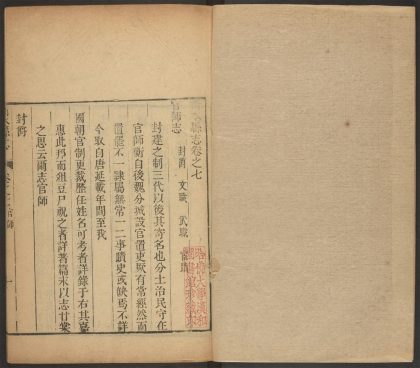 縣志卷之七
官師志 封爵 文職 武職
封建之制三代以後其寄名也分土治民守在
官師衛自後魏分城設官道吏厥有常經然而
置罷不一隸屬無常一二事蹟史或缺焉不詳
今取自唐延載年間至我
國朝官制更裁歷任姓名可考者詳錄于右其嘉
惠此邦而俎豆尸祝之者詳著篇末以志甘棠
之思云爾志官師
封爵
縣志 卷之七 官師 一
哈佛大學漢和圖書館珍藏印